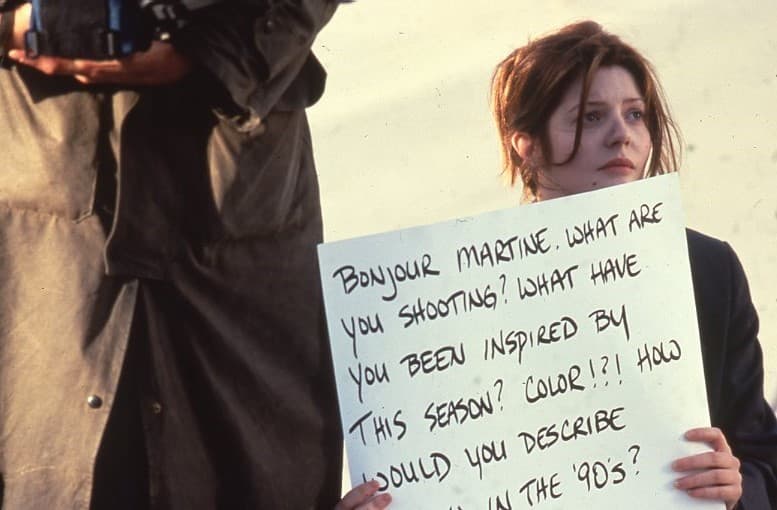 BONJOUR MARTINE. WHAT ARE
YOU SHOOTING? WHAT HAVE
YOU BEEN INSPIRED BY
THIS SEASON? COLOR!?! HOW
WOULD YOU DESCRIBE
IN THE '90's?